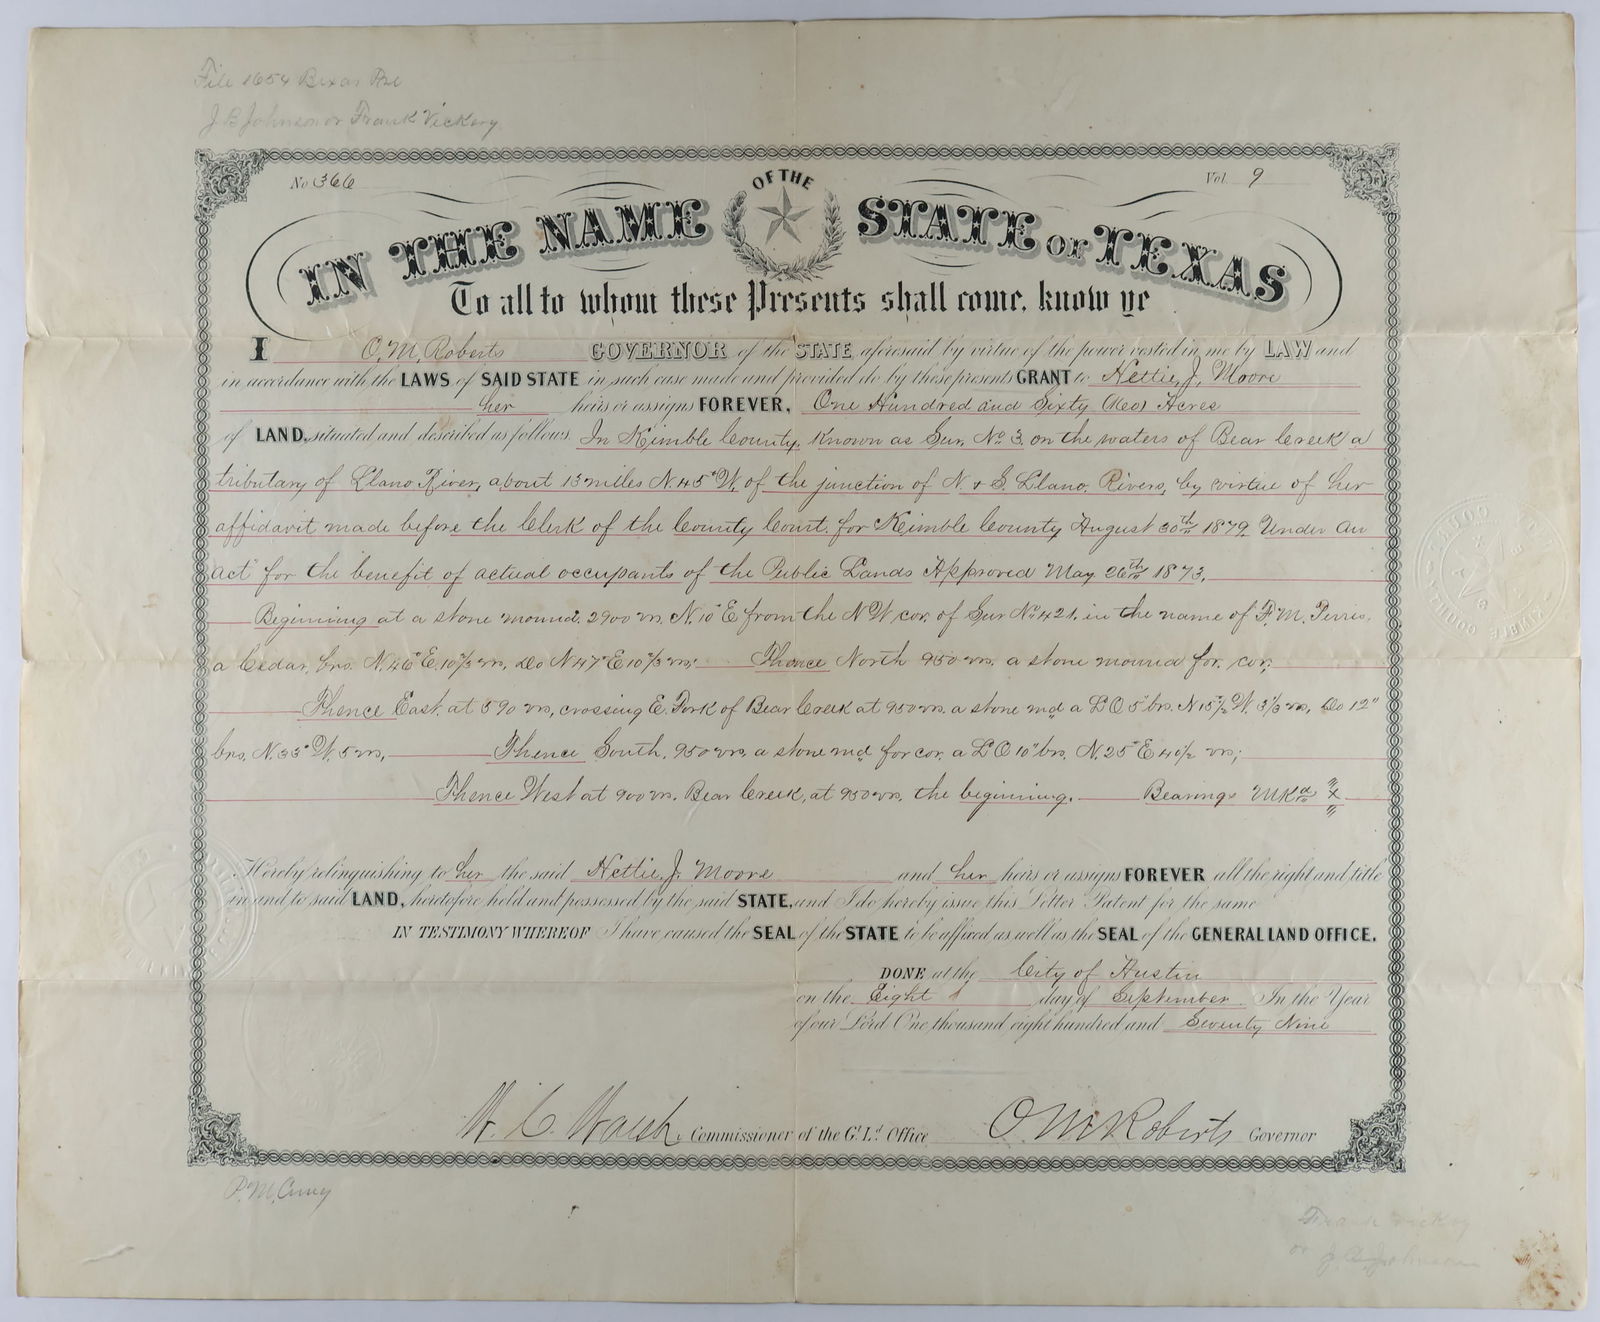 File 1654 Bexar Pre
J B Johnson or Frank Vickery
No 366
Vol. 9
IN THE NAME OF THE STATE OF TEXAS
To all to whom these Presents shall come, know ye
I O. M. Roberts GOVERNOR of the STATE, aforesaid by virtue of the power vested in me by LAW and
in accordance with the LAWS of SAID STATE in such case made and provided do by these presents GRANT to Nettie, J, Moore
her heirs or assigns FOREVER, One Hundred and Sixty (160) Acres
of LAND, situated and described as follows. In Kimble County, Known as Sur, No 3, on the waters of Bear Creek a
tributary of Llano River, about 13 miles N. 45° W. of the junction of N & S. Llano, Rivers, by virtue of her
affidavit made before the Clerk of the County Court, for Kimble County August 30th 1879, Under An
act" for the benefit of actual occupants of the Public Lands Approved May 26th 1873,
Beginning at a stone mound, 2900 vrs, N. 10° E from the N W cor, of Sur No 421, in the name of F. M. Perris,
a Cedar, brs. N. 46° E. 10 2/3 vrs, Do N 47° E 10 2/3 vrs; Thence North 950 vrs. a stone mound for, cor;
Thence East, at 590 vrs, crossing E. Fork of Bear Creek at 950 vrs. a stone md a L O 5" brs. N 15 1/2° W. 3 1/3 vrs, Do 12"
brs, N. 33° W. 5 vrs, Thence South, 950 vrs. a stone md for cor, a L O 10" brs, N. 25° E 40 1/2 vrs;
Thence West at 900 vrs. Bear Creek, at 950 vrs, the beginning. Bearings MKd X
Hereby relinquishing to her the said Nettie, J, Moore and her heirs or assigns FOREVER all the right and title
in and to said LAND, heretofore held and possessed by the said STATE, and I do hereby issue this Letter Patent for the same
IN TESTIMONY WHEREOF I have caused the SEAL of the STATE to be affixed as well as the SEAL of the GENERAL LAND OFFICE.
DONE at the City of Austin
on the Eight day of September In the Year
of our Lord One thousand eight hundred and Seventy Nine
W. C. Walsh, Commissioner of the Gl. Ld. Office O M Roberts Governor
Frank Vickery
or J. B. Johnson